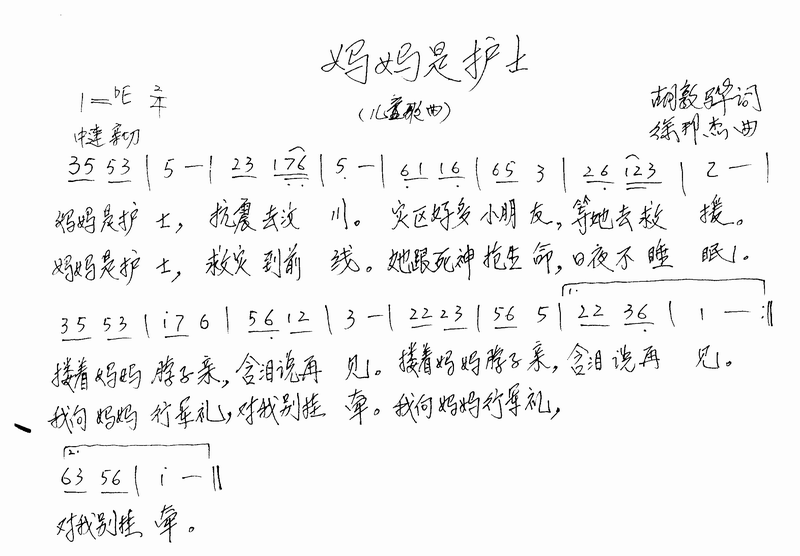 妈妈是护士
1=bE 2/4
(儿童歌曲)
胡敦骅词
中速 亲切
徐邦杰曲
35 53 | 5 — | 23 176 | 5 — | 61 16 | 65 3 | 26 i23 | 2 — |
妈妈是护 士, 抗震去汶 川。 灾区好多 小朋友, 等她去救 援。
妈妈是护 士, 救灾到前 线。 她跟死神 抢生命, 日夜不睡 眠。
1.
35 53 | i7 6 | 56 12 | 3 — | 22 23 | 56 5 | 22 36 | 1 — :||
搂着妈妈 脖子亲, 含泪说再 见。 搂着妈妈 脖子亲, 含泪说再 见。
我向妈妈 行军礼, 对我别挂 牵。 我向妈妈 行军礼,
2.
63 56 | i — ||
对我别挂 牵。